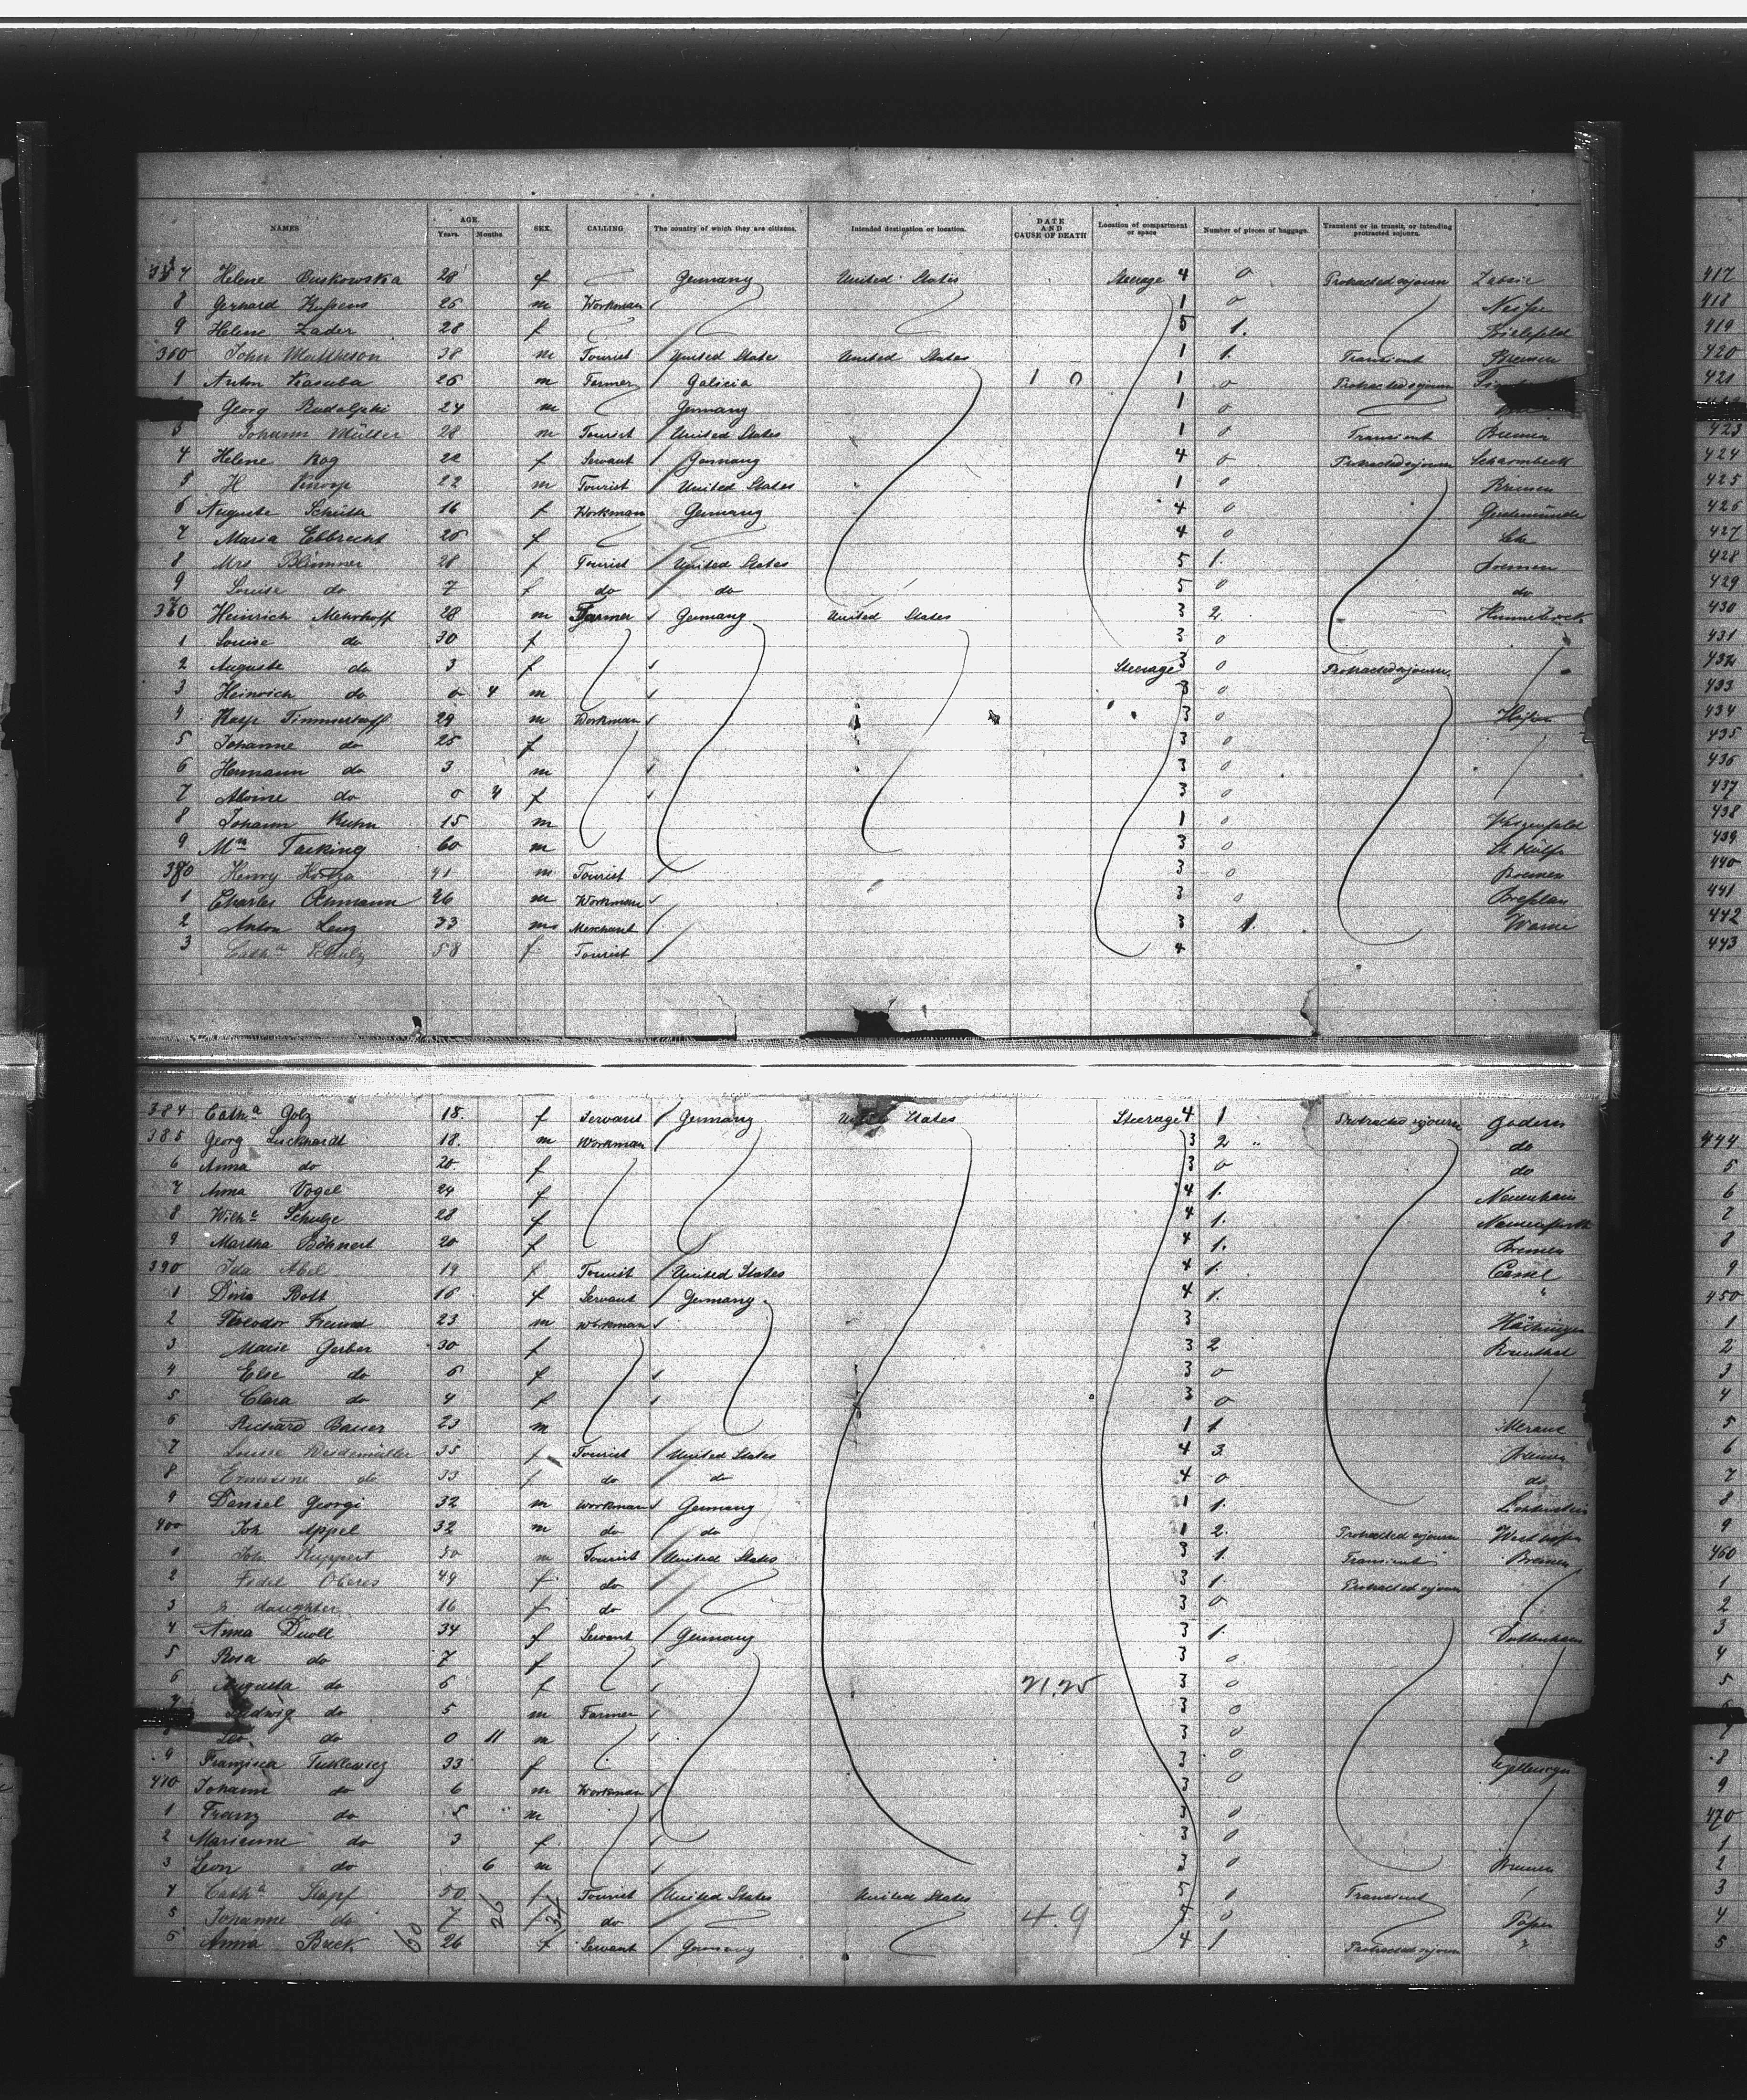 NAMES AGE. Years. Months. SEX. CALLING The country of which they are citizens. Intended destination or location. DATE AND CAUSE OF DEATH Location of compartment or space Number of pieces of baggage. Transient or in transit, or intending protracted sojourn.
7 Helene Buskowska 28 f Germany United States Steerage 4 0 Protracted sojourn 417
8 Gerhard 26 m Workman 1 0 Neiße 418
9 Helene Zader 28 f 5 1. Bielefeld 419
360 John Mattheson 38 m Tourist United State United States 1 1. Transient Bremen 420
1 Anton Kasuba 26 m Farmer Galicia 1 0 1 0 Protracted sojourn 421
Georg Rudolphi 24 m Germany 1 0
3 Johann Müller 28 m Tourist United States 1 0 Transient Bremen 423
4 Helene Rog 22 f Servant Germany 4 0 Protracted sojourn Scharmbeck 424
5 H Knoop 22 m Tourist United States 1 0 Bremen 425
6 Auguste Schütte 16 f Workman Germany 4 0 Geestemünde 426
7 Maria Ebbrecht 26 f 4 0 Lehe 427
8 Mrs Blümner 28 f Tourist United States 5 1. Bremen 428
9 Louise do 7 f do do 5 0 do 429
370 Heinrich Mehrhoff 28 m Farmer Germany United States 3 2. 430
1 Louise do 30 f 3 0 431
2 Auguste do 3 f Steerage 3 0 Protracted sojourn. 432
3 Heinrich do 0 4 m 3 0 433
4 Kasp Timmerhoff 29 m Workman 3 0 434
5 Johanne do 25 f 3 0 435
6 Hermann do 3 m 3 0 436
7 Alvine do 0 4 f 3 0 437
8 Johann Kuhn 15 m 1 0 438
9 Wm Tacking 60 m 3 0 St Hülfe 439
380 Henry 41 m Tourist 3 0 Bremen 440
1 Charles 26 m Workman 3 0 Breßlau 441
2 Anton Lenz 33 m Merchant 3 1. 442
3 Catha Schulz 58 f Tourist 4 443
384 Catha Golz 18. f Servant Germany United States Steerage 4 1 Protracted sojourn Godern
385 Georg Luckhardt 18. m Workman 3 2 " do 444
6 Anna do 20. f 3 0 do 5
7 Anna Vogel 24 f 4 1. Neuenhain 6
8 Wilhe Schulze 28 f 4 1. 7
9 Martha Böhnert 20 f 4 1. Bremen 8
390 Ida Abel 19 f Tourist United States 4 1. Cassel 9
1 Dina Bott 16 f Servant Germany 4 1. " 450
2 Theodor Freund 23 m Workman 3 Hächingen 1
3 Marie Gerber 30 f 3 2 2
4 Else do 6 f 3 0 3
5 Clara do 4 f 3 0 4
6 Richard Bauer 23 m 1 1 Merane 5
7 Louise Weidemüller 35 f Tourist United States 4 3. Bremen 6
8 Ernestine do 33 f do do 4 0 do 7
9 Daniel Georgi 32 m Workman Germany 1 1. Lichtenstein 8
400 Joh Appel 32 m do do 1 2. Protracted sojourn Westhofen 9
1 Joh. Ruppert 50 m Tourist United States 3 1. Transient Bremen 460
2 Fidel Oberes 49 f do 3 1. Protracted sojourn 1
3 & daughter 16 f do 3 0 2
4 Anna Duoll 34 f Servant Germany 3 1. 3
5 Rosa do 7 f 3 0 4
6 Augusta do 6 f 21.25 3 0 5
7 Ludwig do 5 m Farmer 3 0
8 Leo do 0 11 m 3 0 7
9 Franzisca Tuklewicz 33 f 3 0 8
410 Johann do 6 m Workman 3 0 9
1 Franz do 5 m 3 0 470
2 Marianne do 3 f 3 0 1
3 Leon do 6 m 3 0 Bremen 2
4 Catha Stapf 50 f Tourist United States United States 5 1 Transient 3
5 Johanne do 7 f do 4.9 5 0 4
6 Anna Buck 26 f Servant Germany 4 1 Protracted sojourn 5
60 26 34